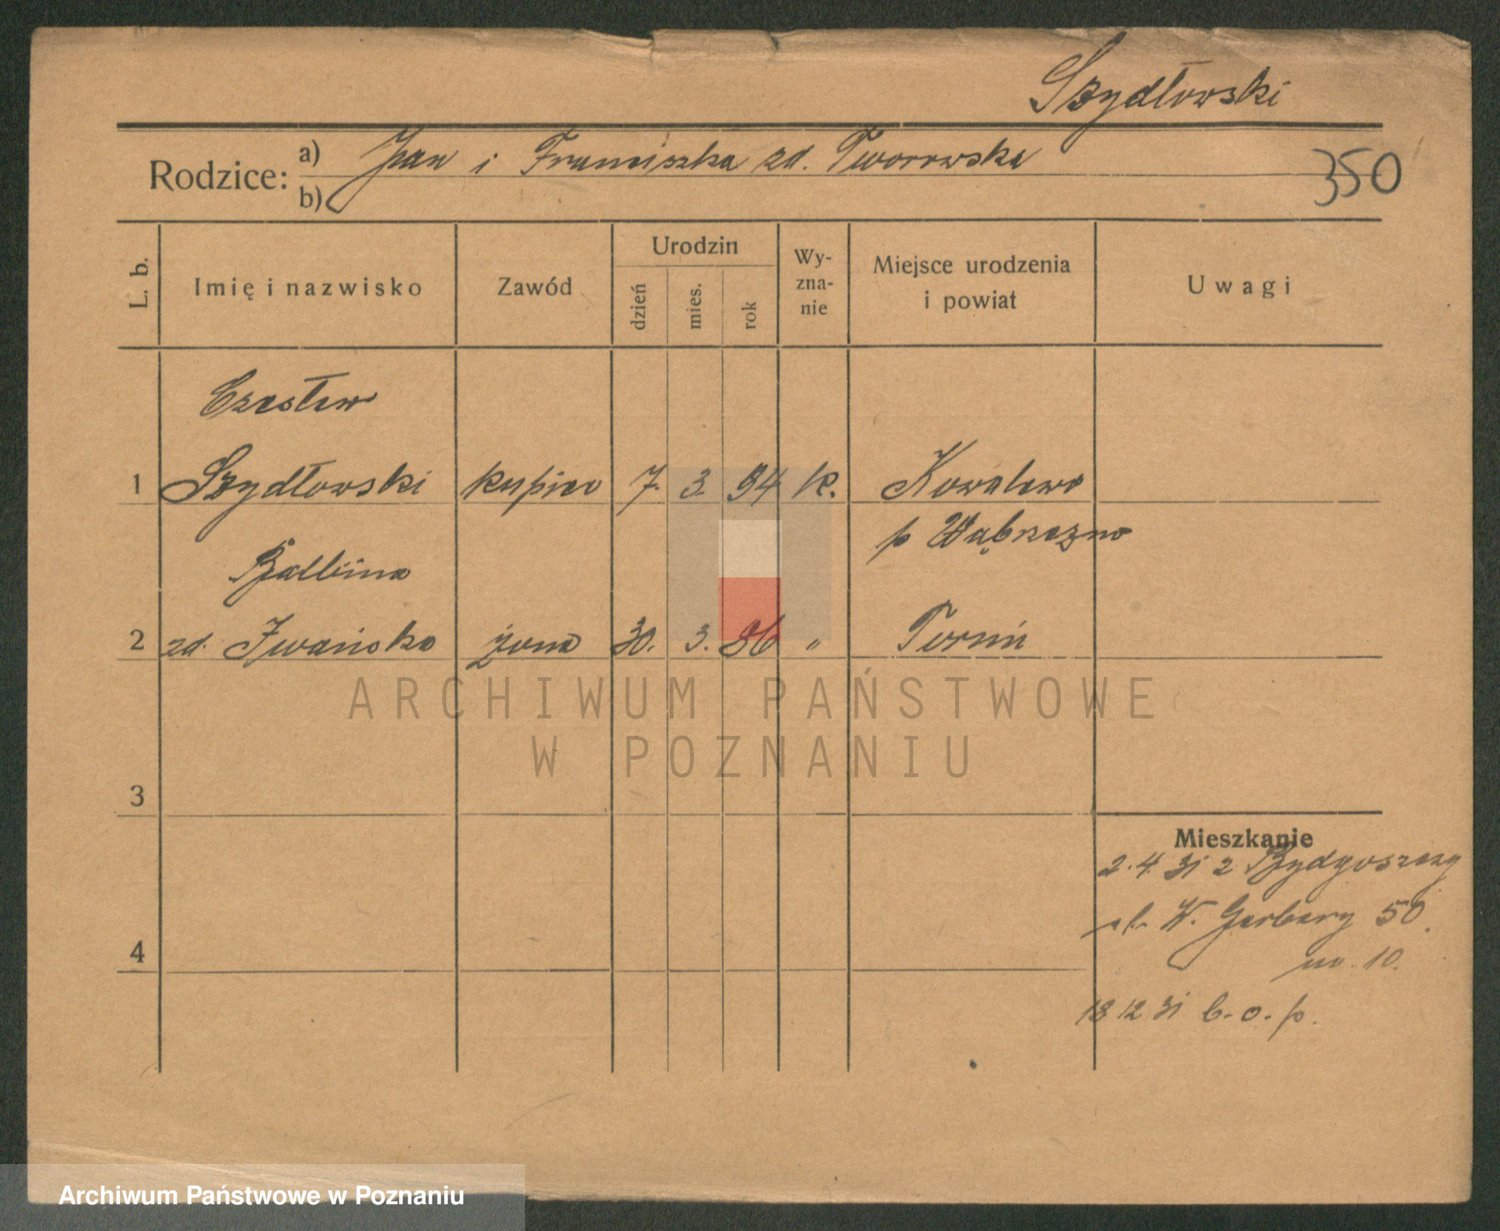 Szydłowski
Rodzice: a) Jan i Franciszka zd. Tworowska
b)
350
L. b.
Imię i nazwisko
Zawód
Urodzin
dzień
mies.
rok
Wy-
zna-
nie
Miejsce urodzenia
i powiat
Uwagi
Czesław
1 Szydłowski kupiec 7. 3. 94 k. Kowalewo
p Wąbrzeźno
Balbina
2 zd. Iwańska żona 30. 3. 96 " Toruń
ARCHIWUM PAŃSTWOWE
W POZNANIU
3
Mieszkanie
2.4.31 z Bydgoszczy
W. Garbary 50.
4
m. 10.
18 12 31 b. o. p.
Archiwum Państwowe w Poznaniu